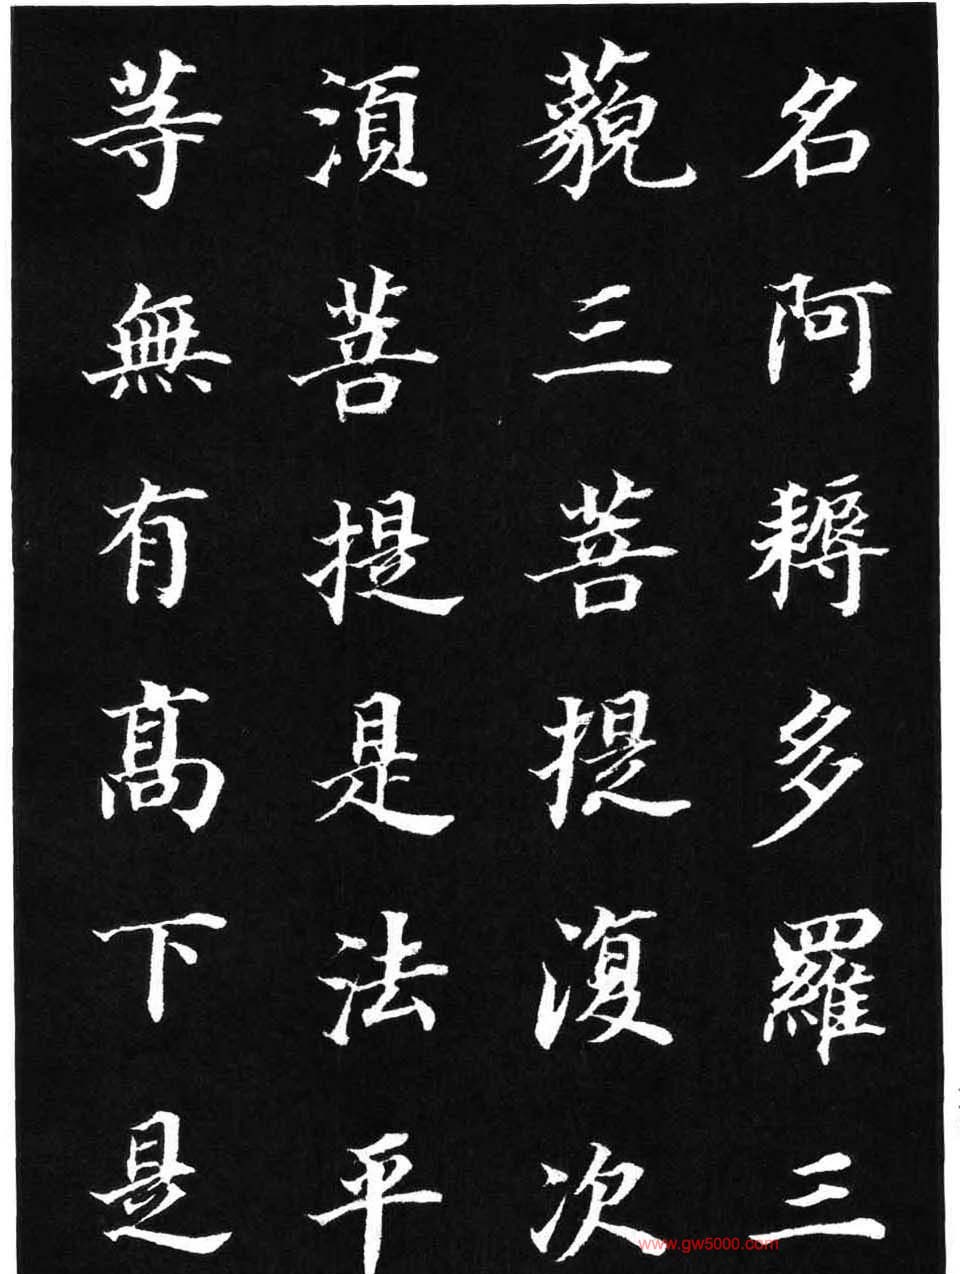 名阿耨多羅三
藐三菩提復次
須菩提是法平
等無有高下是
www.gw5000.com